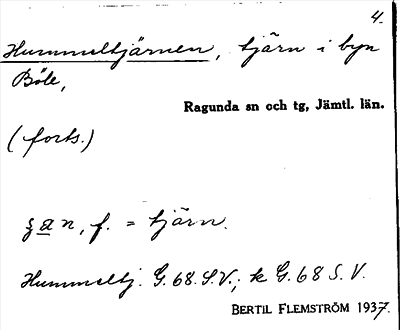 4.
Hummeltjärnen, tjärn i byn
Böle,
Ragunda sn och tg, Jämtl. län.
(forts.)
ʒan, f. = tjärn.
Hummeltj. G.68.S.V.; k G.68 S.V.
BERTIL FLEMSTRÖM 1937.